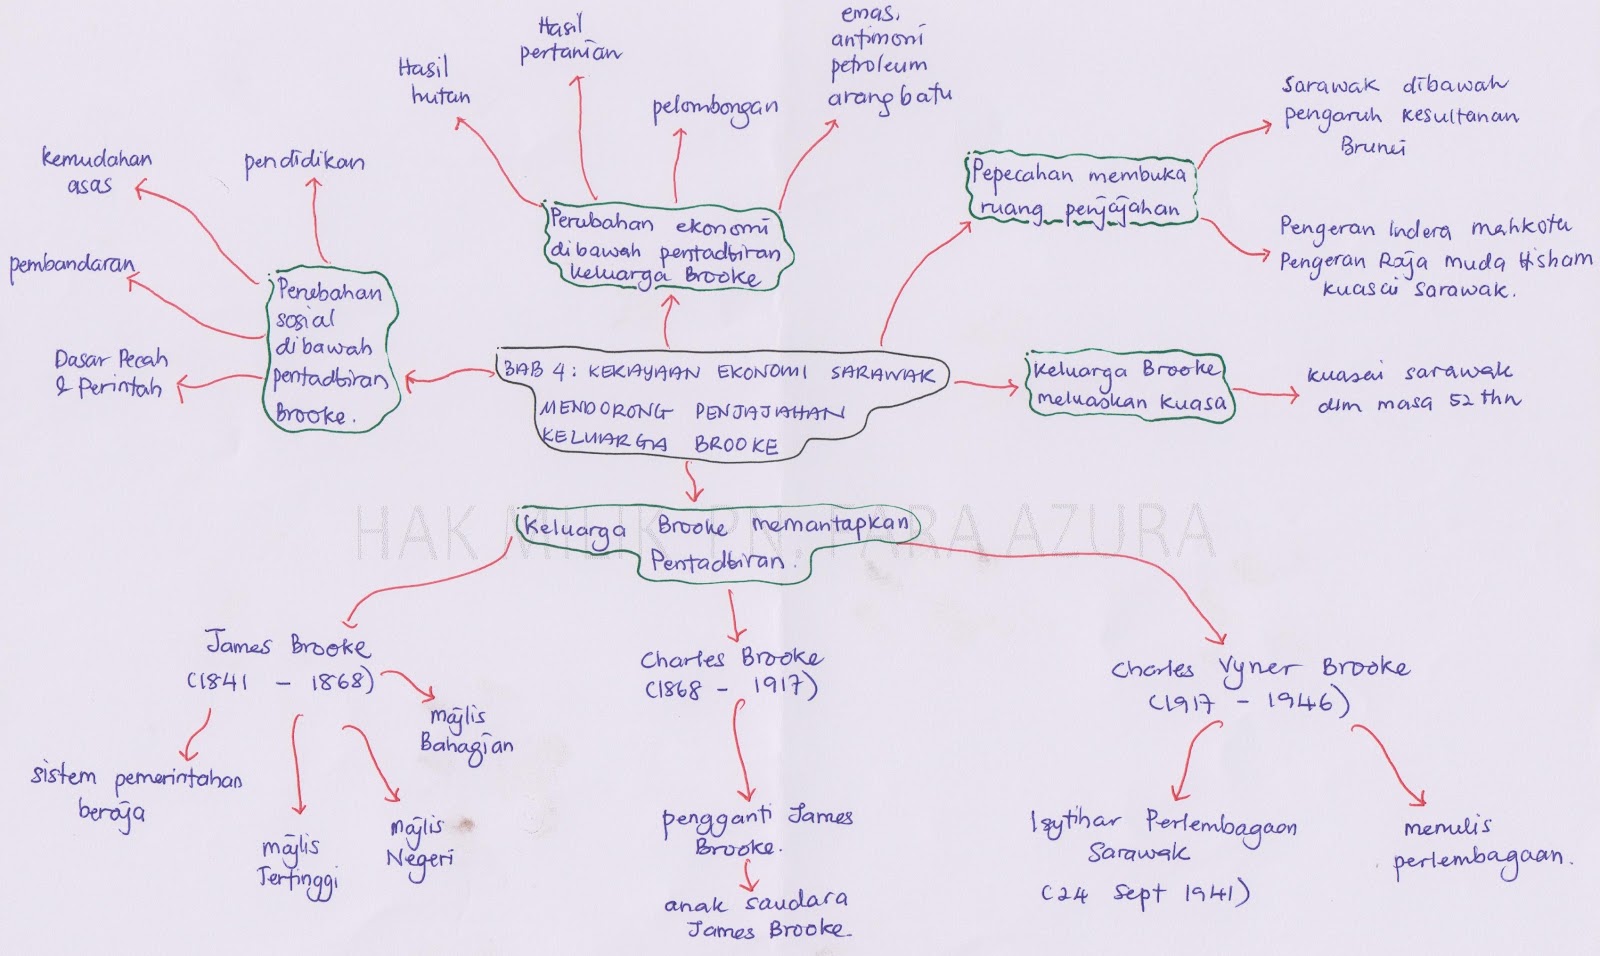 Hasil
hutan
Hasil
pertanian
pelombongan
emas,
antimoni
petroleum
arang batu
kemudahan
asas
pendidikan
pembandaran
Dasar Pecah
& Perintah
Perubahan
sosial
dibawah
pentadbiran
Brooke.
Perubahan ekonomi
dibawah pentadbiran
keluarga Brooke
Pepecahan membuka
ruang penjajahan
Sarawak dibawah
pengaruh Kesultanan
Brunei
Pengeran Indera mahkota
Pengeran Raja muda Hisham
kuasai Sarawak.
BAB 4: KEKAYAAN EKONOMI SARAWAK
MENDORONG PENJAJAHAN
KELUARGA BROOKE
Keluarga Brooke
meluaskan kuasa
kuasai sarawak
dlm masa 52 thn
HAK MILIK PN. FARA AZURA
Keluarga Brooke memantapkan
Pentadbiran.
James Brooke
(1841 - 1868)
majlis
Bahagian
sistem pemerintahan
beraja
majlis
Tertinggi
majlis
Negeri
Charles Brooke
(1868 - 1917)
pengganti James
Brooke.
anak saudara
James Brooke.
Charles Vyner Brooke
(1917 - 1946)
Isytihar Perlembagaan
Sarawak
(24 Sept 1941)
menulis
perlembagaan.